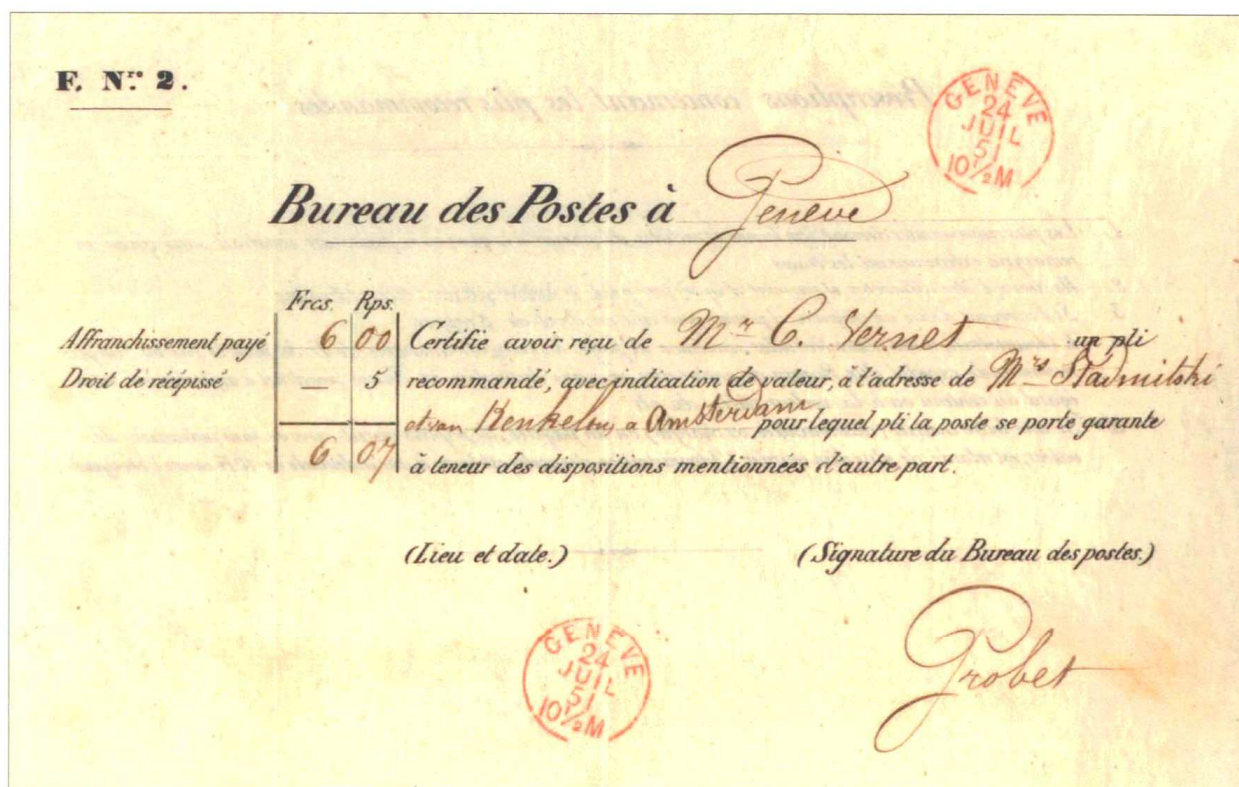 F. Nro 2.
GENÈVE
24
JUIL
51
10½M
Bureau des Postes à Genève
Frcs. Rps.
Affranchissement payé 6 00 Certifie avoir reçu de Mr C. Vernet un pli
Droit de récépissé — 5 recommandé, avec indication de valeur, à l'adresse de Mrs
et van à Amsterdam pour lequel pli la poste se porte garante
6 07 à teneur des dispositions mentionnées d'autre part.
(Lieu et date.) (Signature du Bureau des postes.)
GENÈVE
24
JUIL
51
10½M
Grobet